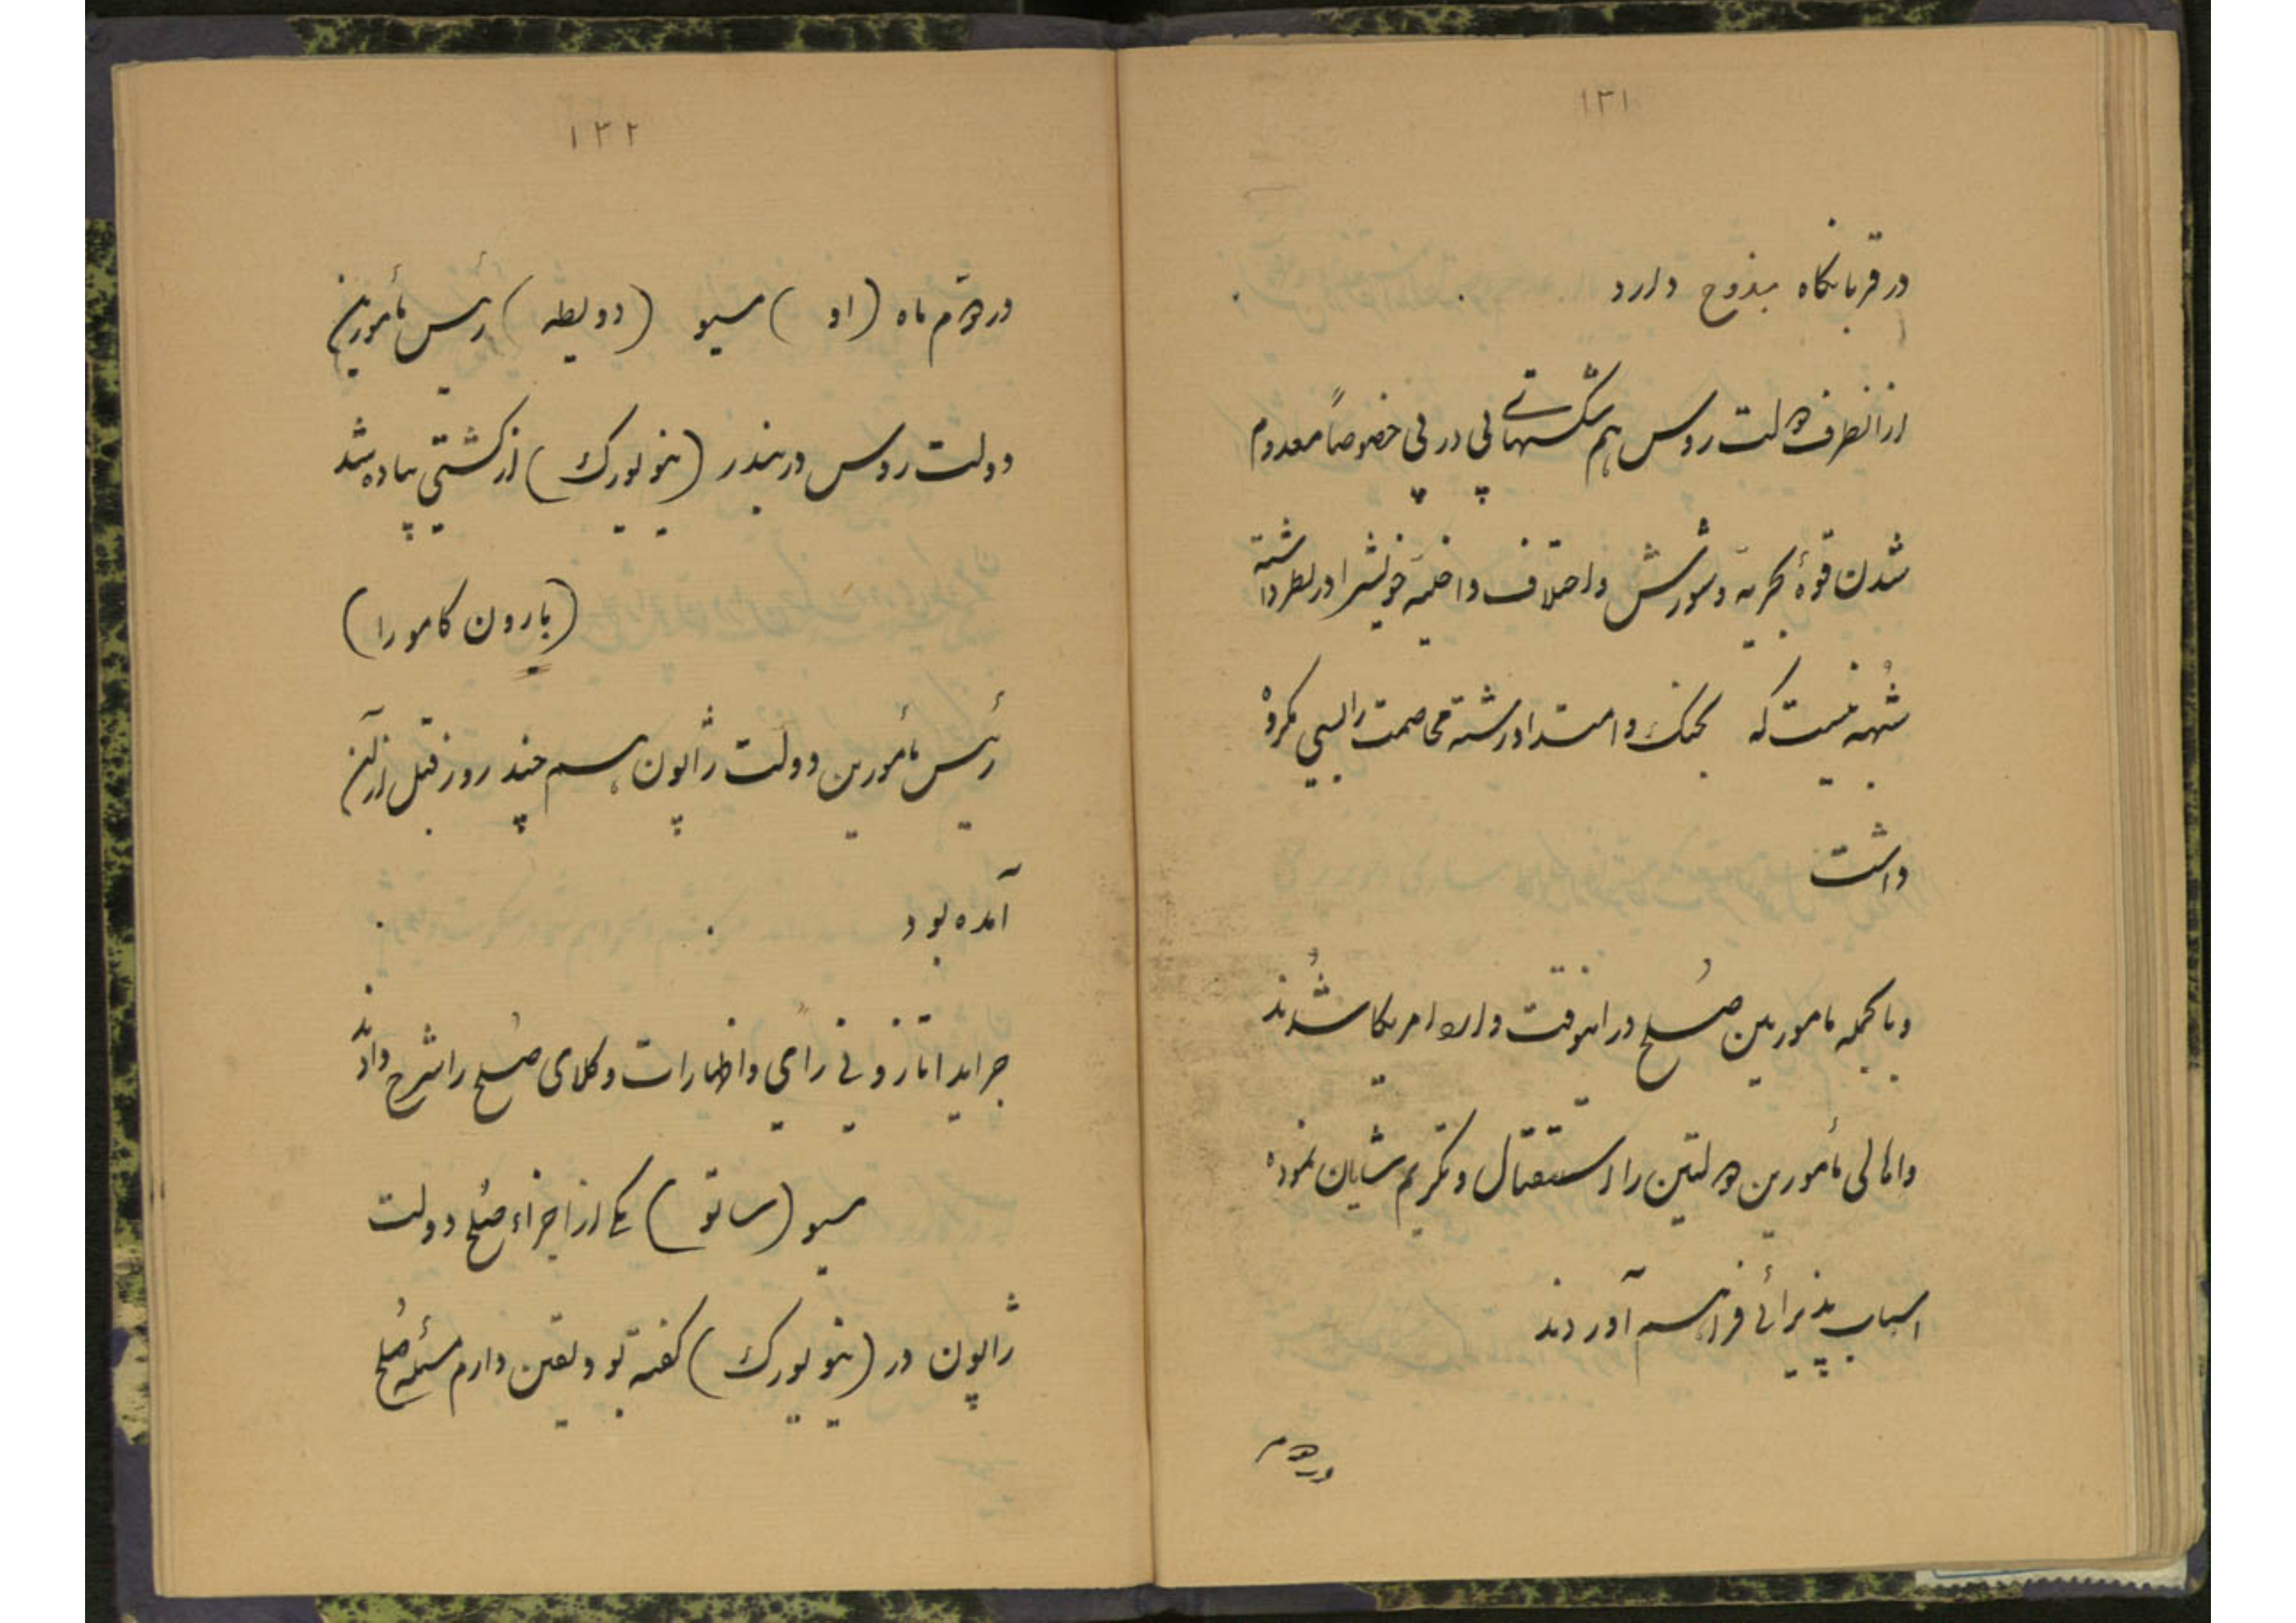 ۱۳۱
در قربانگاه مذبوح دارد
از آنطرف دولت روس هم شکستهای پی در پی خصوصاً معدوم
شدن قوهٔ بحریه و شورش و اختلاف داخلیهٔ خویشرا در نظر داشته
شُبهه نیست که بجنگ و امتداد رشتهٔ مخاصمت را بسی مکروه
داشت
و بالجمله مامورین صُلح در اینوقت وارد امریکا شُدند
و اهالی مأمورین دولتین را استقبال و تکریم شایان نموده
اسباب پذیرائی فراهم آوردند
در دوم
۱۳۲
در دوم ماه (اوت) مسیو (دویطه) رئیس مأمورین
دولت روس در بندر (نیویورک) از کشتی پیاده شد
(بارون کامورا)
رئیس مأمورین دولت ژاپون هم چند روز قبل از آن
آمده بود
جراید اتازونی رأی و اظهارات وکلای صُلح را شرح دادند
مسیو (ساتو) یکی از اجزاء صُلح دولت
ژاپون در (نیویورک) گفته بود یقین دارم مسئله صُلح